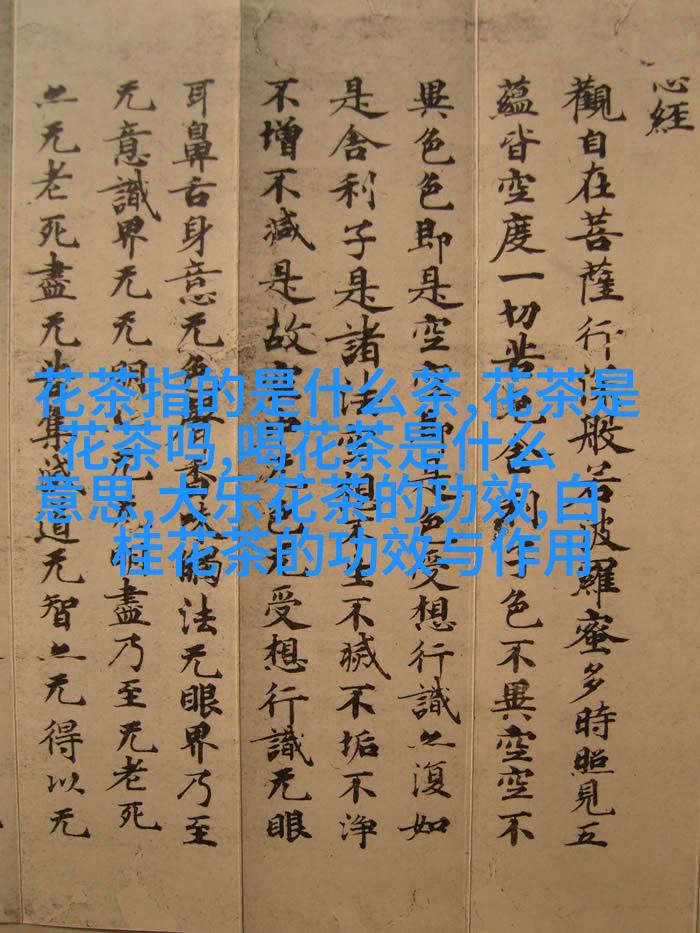 心經
觀自在菩薩行深般若波羅蜜多時照見五
蘊皆空度一切苦厄舍利子色不異空空不
異色色即是空空即是色受想行識亦復如
是舍利子是諸法空相不生不滅不垢不淨
不增不減是故空中无色无受想行識无眼
耳鼻舌身意无色聲香味觸法无眼界乃至
无意識界无无明亦无无明盡乃至无老死
亦无老死盡无苦集滅道无智亦无得以无
花茶指的是什么茶,花茶是
花茶吗,喝花茶是什么
意思,大乐花茶的功效,白
桂花茶的功效与作用